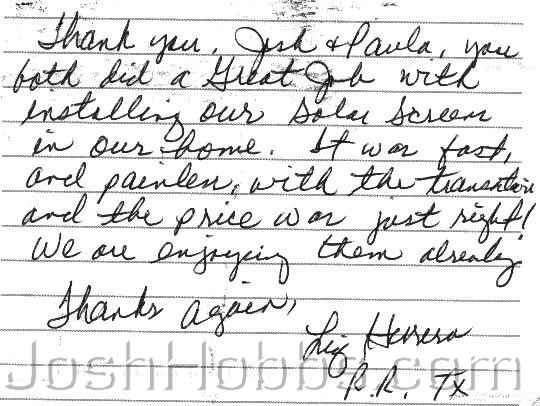 Thank you, Josh & Paula, you
both did a Great Job with
installing our solar screens
in our home. It was fast,
and painlen, with the transaction
and the price was just right!
We are enjoying them already
Thanks again,
Liz Herrera
R.R. TX
JoshHobbs.com